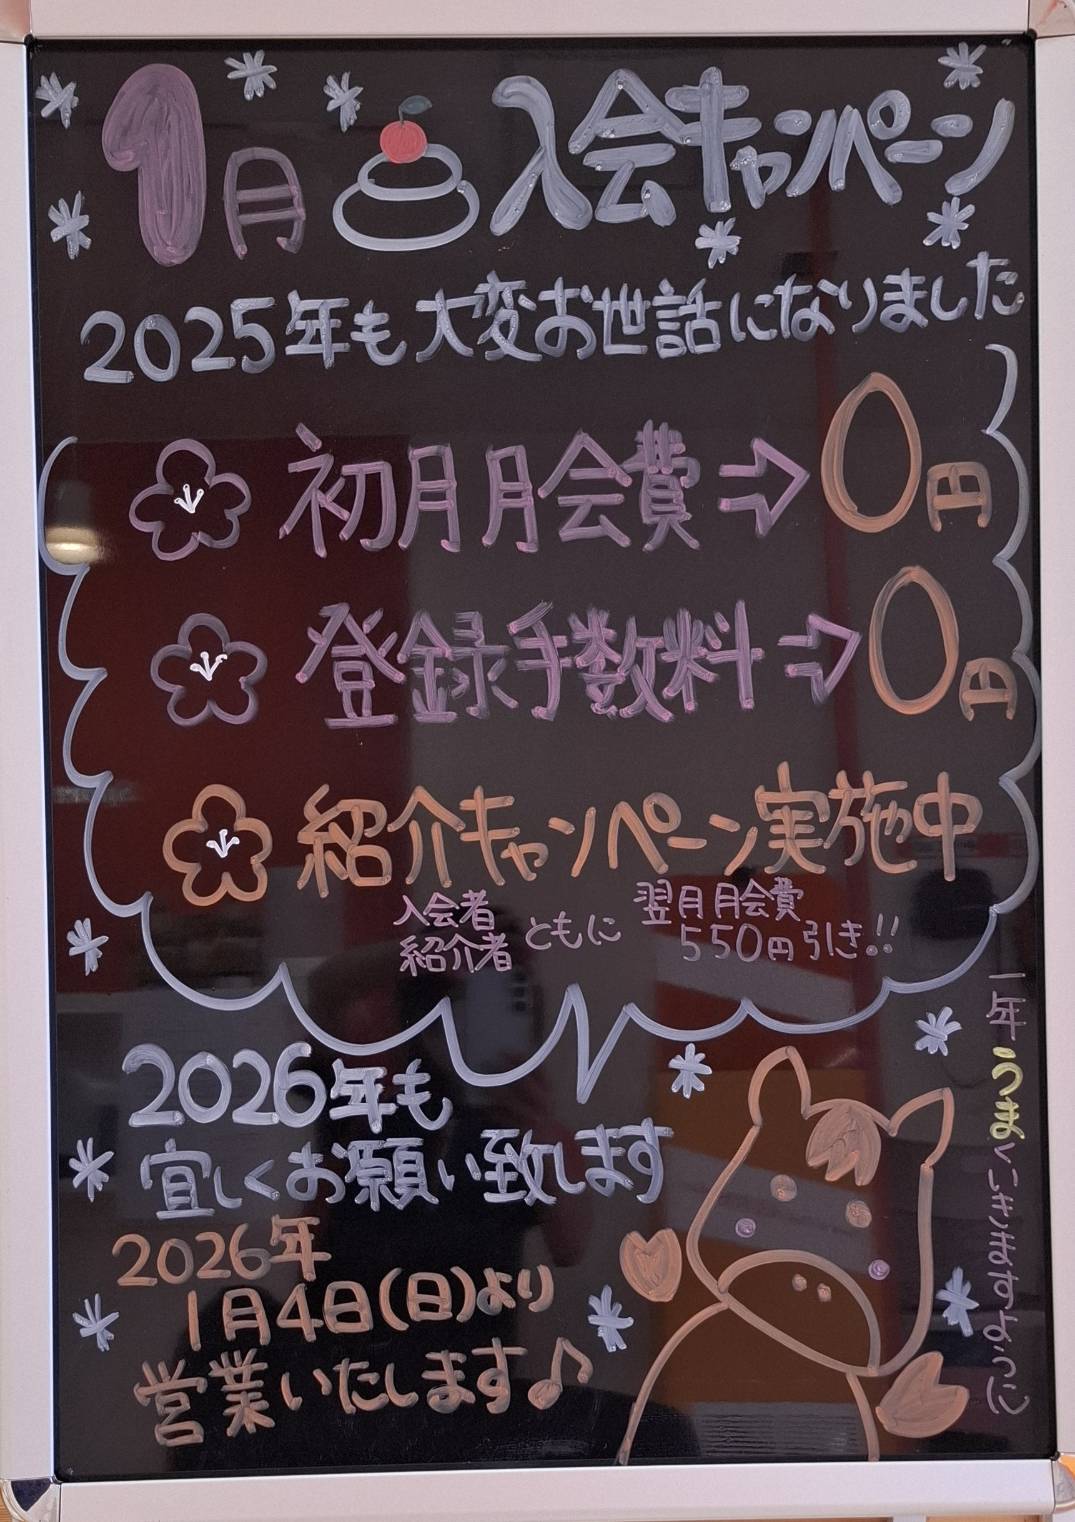 1月 入会キャンペーン
2025年も大変お世話になりました
初月月会費⇨0円
登録手数料⇨0円
紹介キャンペーン実施中
入会者
紹介者
ともに
翌月月会費
550円引き!!
2026年も
宜しくお願い致します
2026年
1月4日(日)より
営業いたします♪
一年うまくいきますように